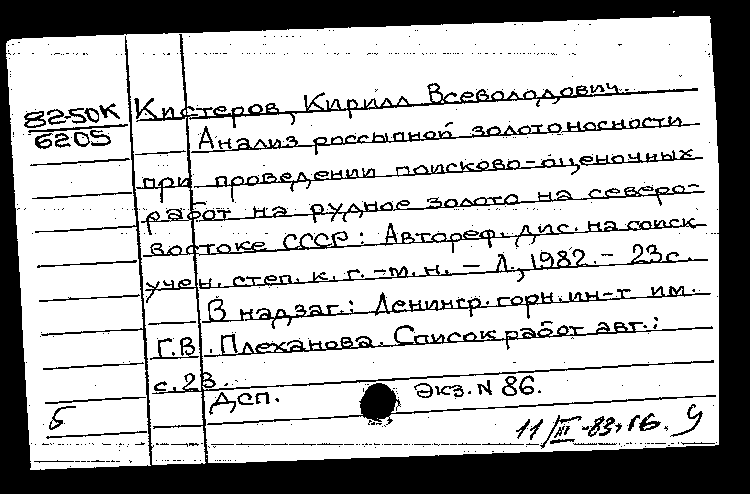 82-50К
6205
Кистеров, Кирилл Всеволодович.
Анализ россыпной золотоносности
при проведении поисково-оценочных
работ на рудное золото на северо-
востоке СССР: Автореф. дис. на соиск
учен. степ. к. г.-м. н. - Л., 1982. - 23с.
В надзаг.: Ленингр. горн. ин-т им.
Г.В. Плеханова. Список работ авт.:
с. 23.
Дсп. Экз. N 86.
Б
11/III-83.